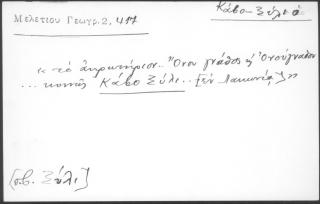 Μελετίου Γεωγρ. 2, 417
Κάβο-Ξύλι
« τὸ ἀκρωτήριον.. Ὄνου γνάθος ἢ Ὀνούγναθον
... κοινῶς Κάβο Ξύλι.. [ἐν Λακωνίᾳ] »
[π.β. Ξύλι]